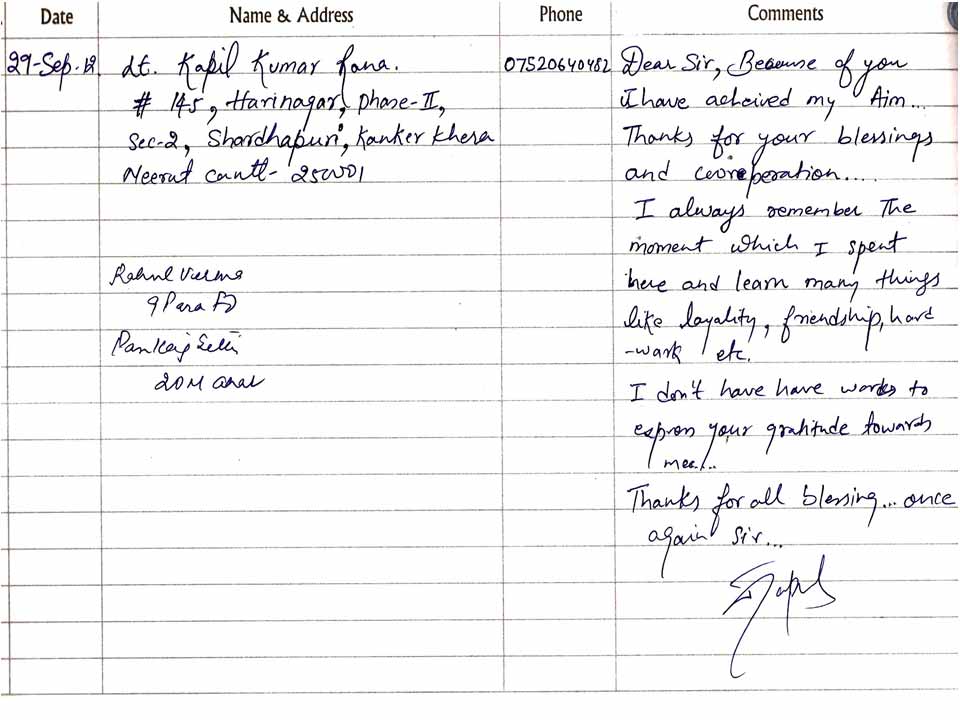 Date Name & Address Phone Comments
29-Sep-12 Lt. Kapil Kumar Rana. 07520640482 Dear Sir, Because of you
# 145, Harinagar, phase-II, I have acheived my Aim...
Sec-2, Shardhapuri, Kanker Khera Thanks for your blessings
Meerut cantt- 250001 and cooreperation....
I always remember the
moment which I spent
Rahul Verma here and learn many things
9 Para FD like loyality, friendship, hard
Pankaj Setti -work etc.
20 M I don't have have words to
express your gratitude towards
mee/..
Thanks for all blessing... once
again Sir...